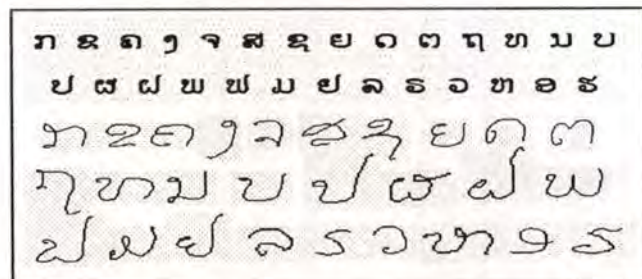 ກ ຂ ຄ ງ ຈ ສ ຊ ຍ ດ ຕ ຖ ທ ນ ບ
ປ ຜ ຝ ພ ຟ ມ ຢ ລ ຣ ວ ຫ ອ ຮ
ກ ຂ ຄ ງ ຈ ສ ຊ ຍ ດ ຕ
ຖ ທ ນ ບ ປ ຜ ຝ ພ
ຟ ມ ຢ ລ ຣ ວ ຫ ອ ຮ